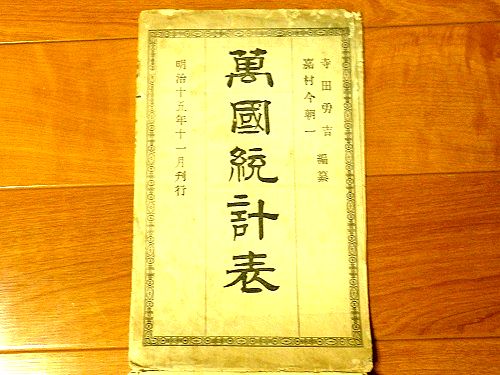 寺田勇吉
嘉村今朝一 編纂
萬國統計表
明治十五年十一月刊行